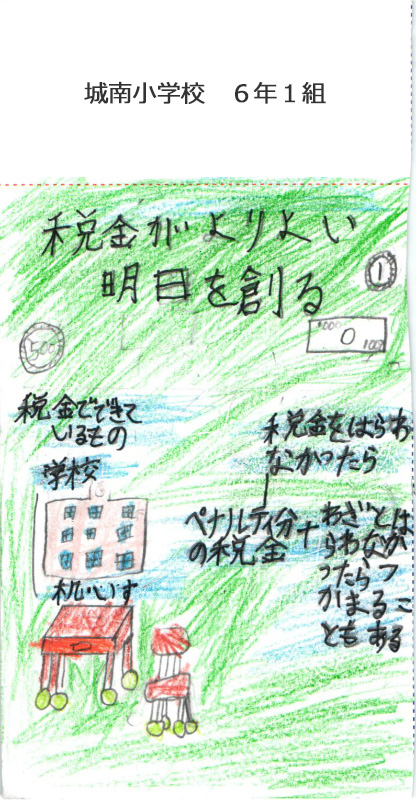 城南小学校　６年１組
税金がよりよい
明日を創る
1
500
1000
0
1000
税金でできて
いるもの
学校
机・いす
税金をはらわ
なかったら
ペナルティ分
の税金
＋
わざとは
らわなか
ったらつ
かまるこ
ともある